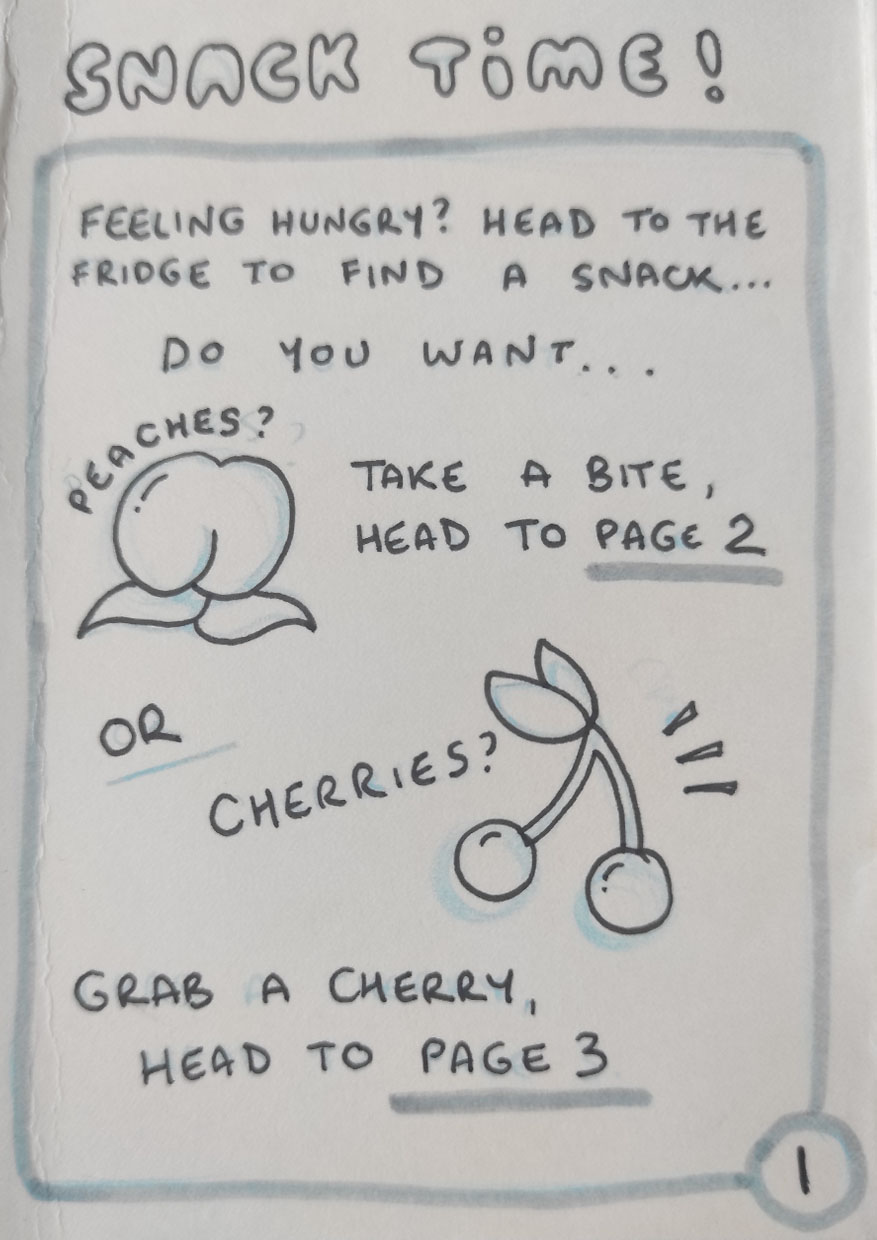 SNACK TiME!
FEELING HUNGRY? HEAD TO THE
FRIDGE TO FIND A SNACK...
DO YOU WANT...
PEACHES?
TAKE A BITE,
HEAD TO PAGE 2
OR
CHERRIES?
GRAB A CHERRY,
HEAD TO PAGE 3
1